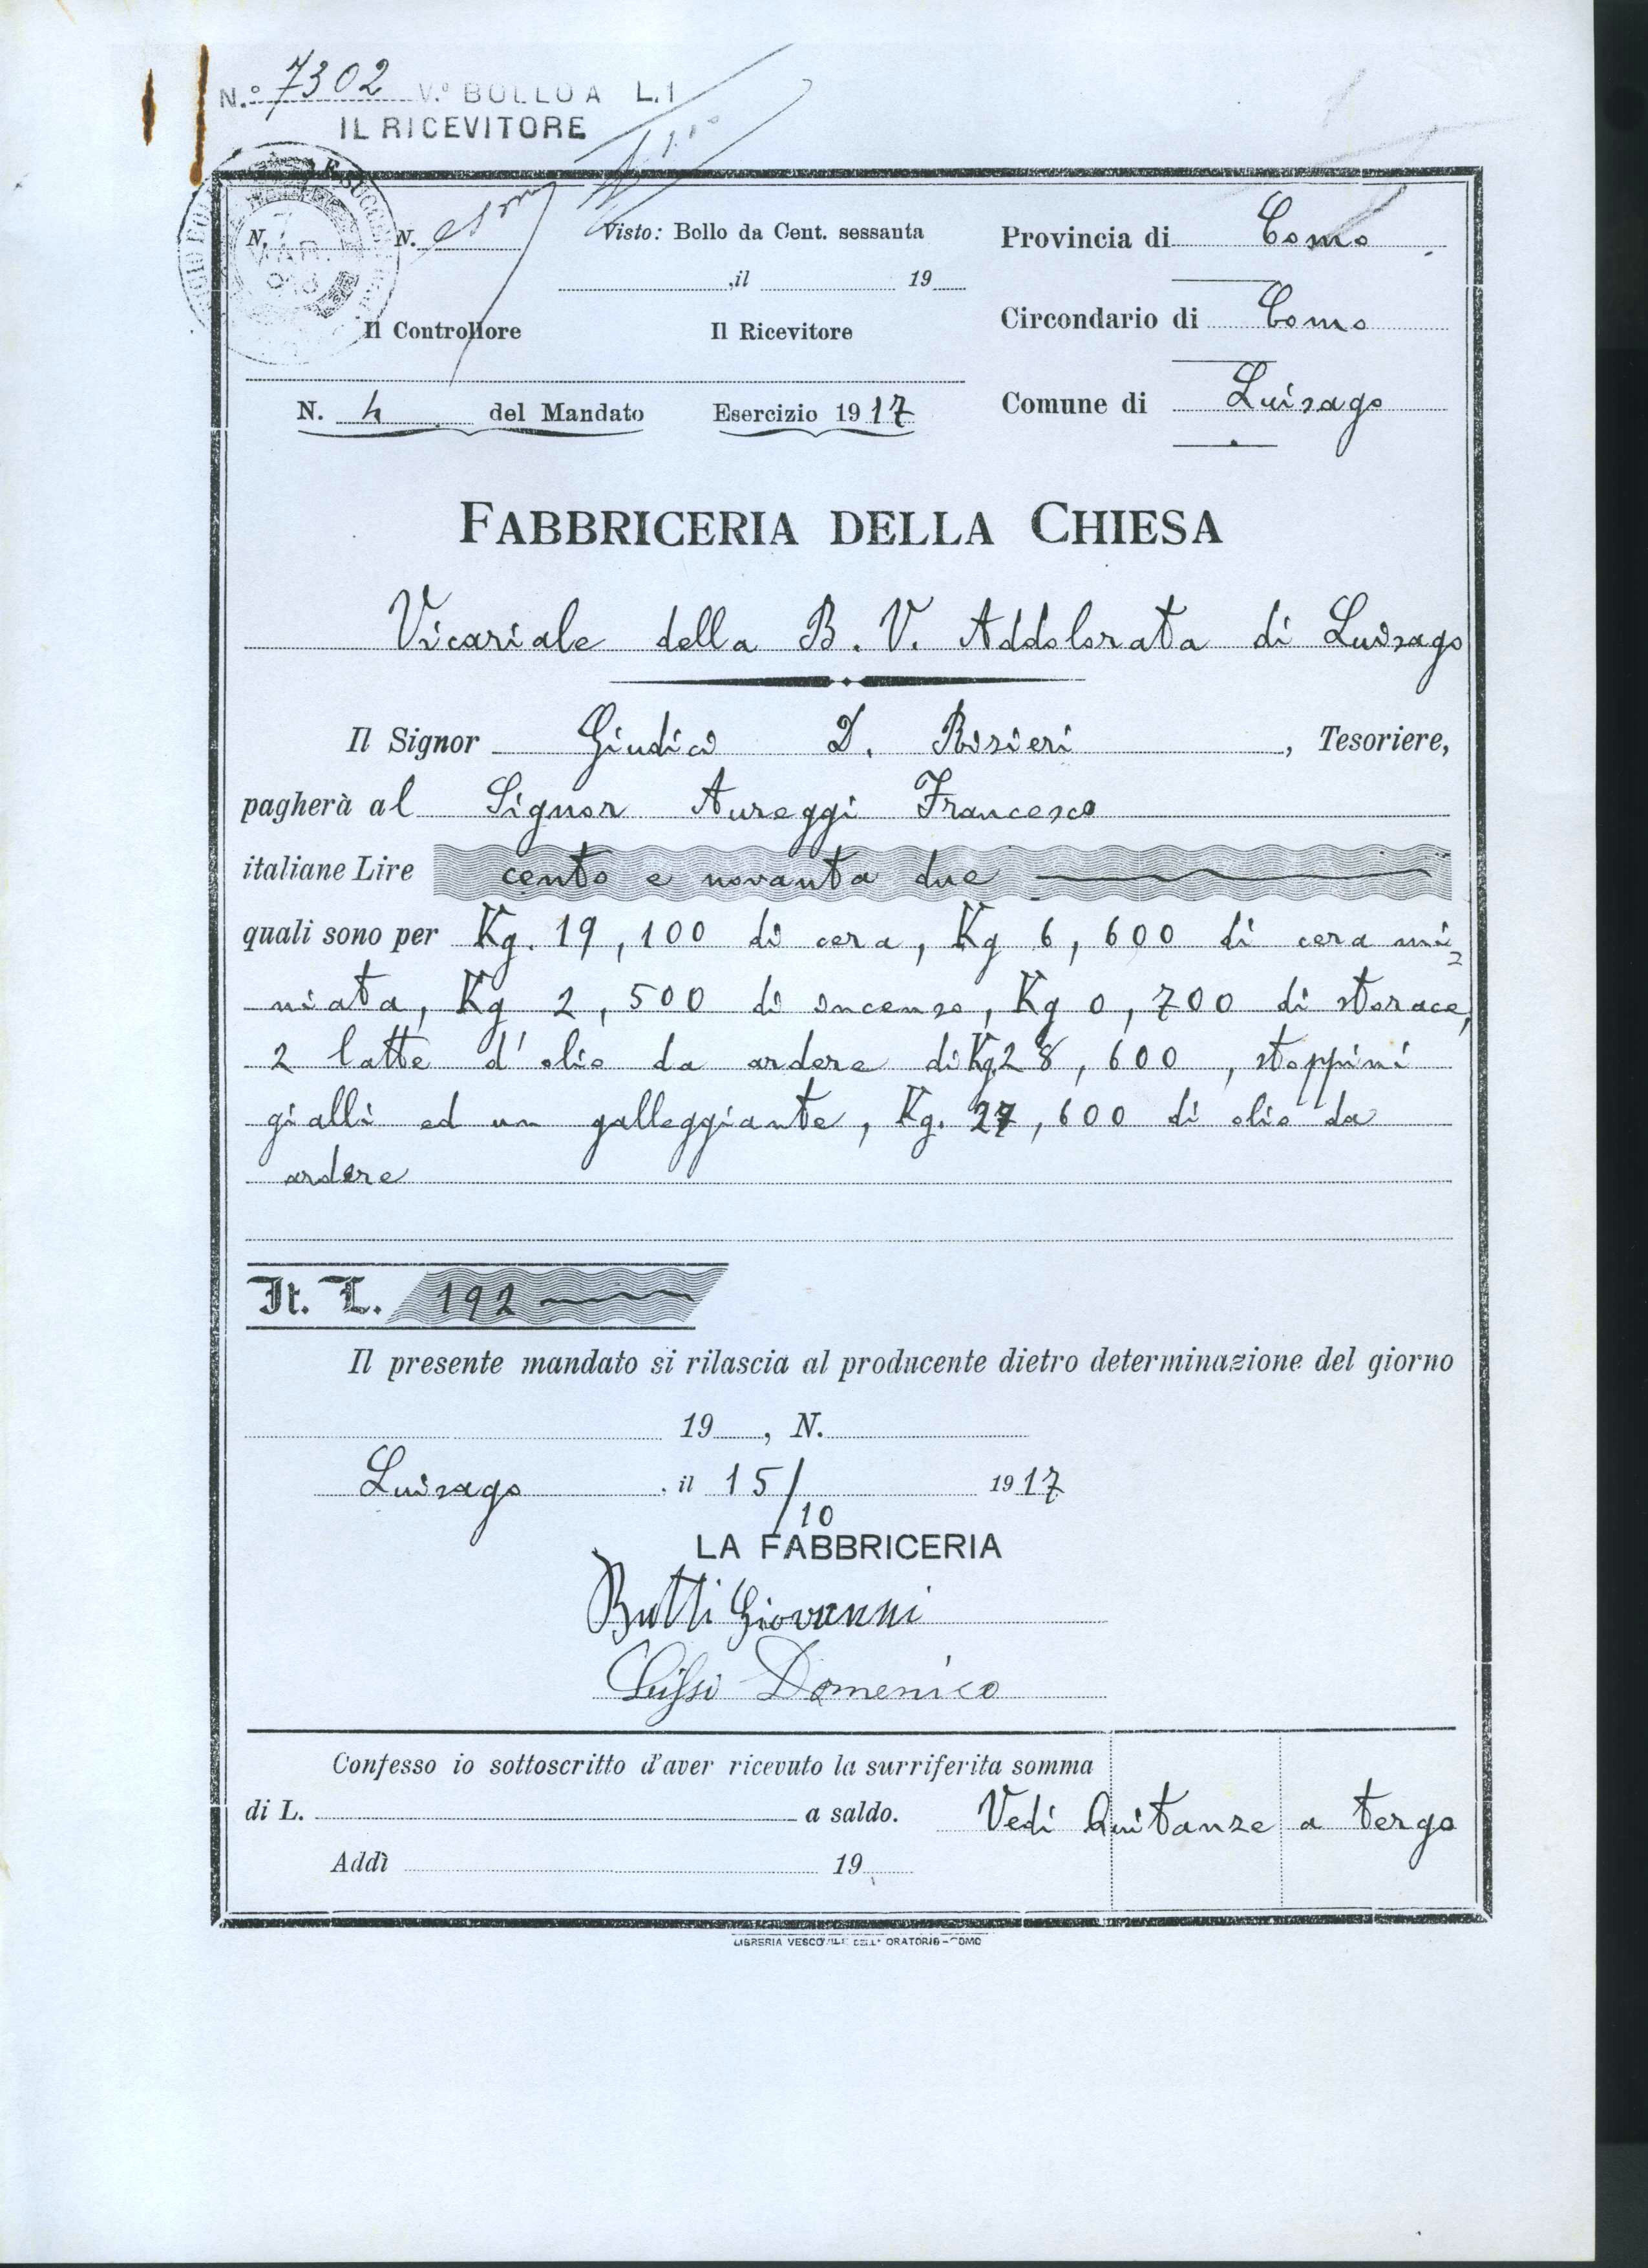 N.º 7302 V.º BOLLO A L. 1
IL RICEVITORE
N. N. Visto: Bollo da Cent. sessanta
,il 19
Il Controllore Il Ricevitore
N. 4 del Mandato Esercizio 1917
Provincia di Como
Circondario di Como
Comune di Luisago
FABBRICERIA DELLA CHIESA
Vicariale della B. V. Addolorata di Luisago
Il Signor Giudici D. Risieri, Tesoriere,
pagherà al Signor Aureggi Francesco
italiane Lire cento e novanta due
quali sono per Kg. 19,100 di cera, Kg 6,600 di cera mi=
niata, Kg 2,500 di incenso, Kg 0,700 di storace,
2 latte d'olio da ardere di Kg. 28,600, stoppini
gialli ed un galleggiante, Kg. 27,600 di olio da
ardere
It. L. 192
Il presente mandato si rilascia al producente dietro determinazione del giorno
19 , N.
Luisago . il 15/10 1917
LA FABBRICERIA
Butti Giovanni
Domenico
Confesso io sottoscritto d'aver ricevuto la surriferita somma
di L. a saldo. Vedi Quitanze a tergo
Addì 19
LIBRERIA VESCOVILE DELL' ORATORIO - COMO